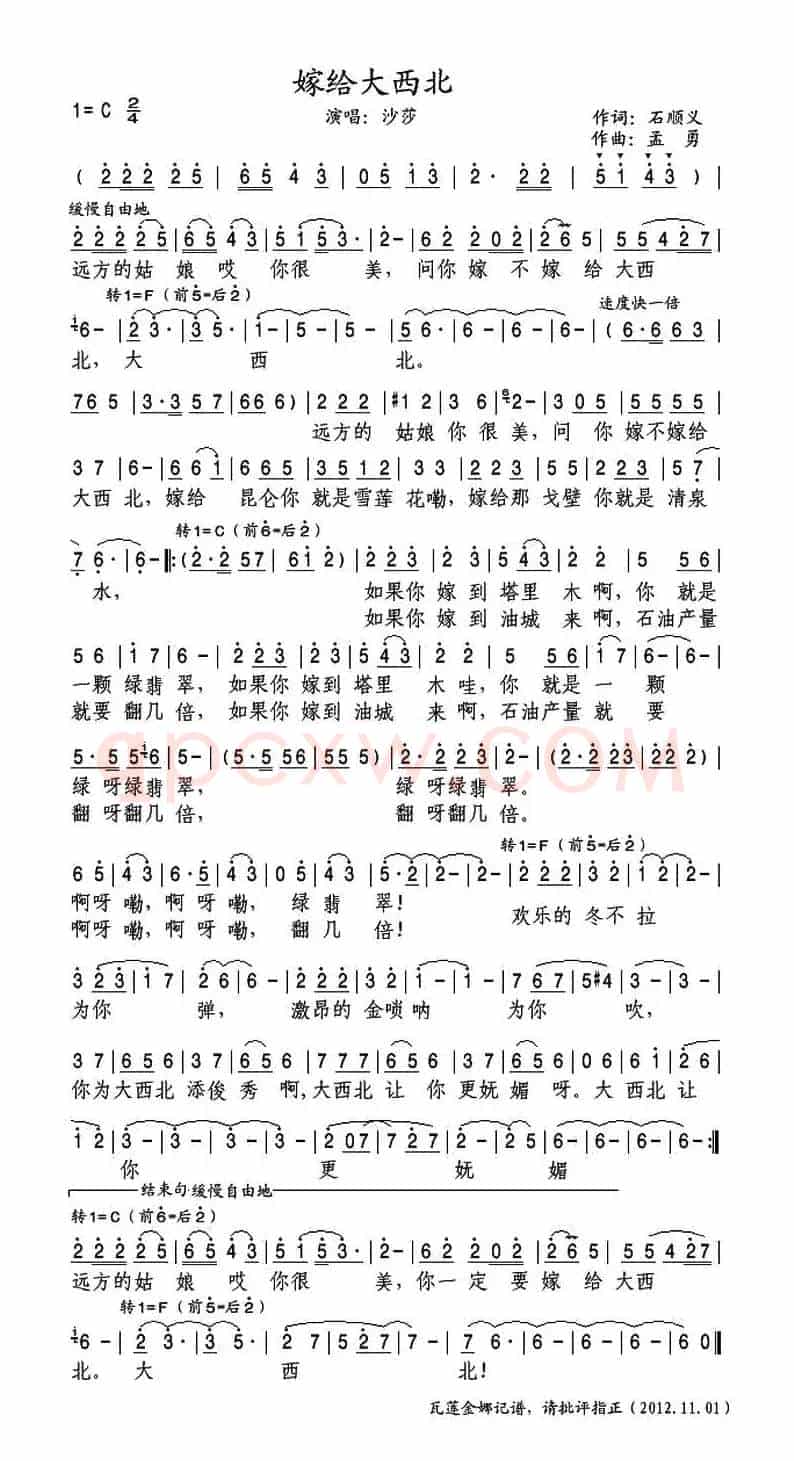 嫁给大西北
1= C 2/4
演唱：沙莎
作词：石顺义
作曲：孟 勇
( 2 2 2 2 5 | 6 5 4 3 | 0 5 1 3 | 2 · 2 2 | 5 1 4 3 ) |
缓慢自由地
2 2 2 2 5 | 6 5 4 3 | 5 1 5 3 · | 2 - | 6 2 2 0 2 | 2 6 5 | 5 5 4 2 7 |
远方的姑 娘 哎 你很 美，问你 嫁 不 嫁 给 大西
转1=F（前5=后2）
速度快一倍
6 - | 2 3 · | 3 5 · | 1 - | 5 - | 5 - | 5 6 · | 6 - | 6 - | ( 6 · 6 6 3 |
北，大 西 北。
7 6 5 | 3 · 3 5 7 | 6 6 6 ) | 2 2 2 | #1 2 | 3 6 | 2 - | 3 0 5 | 5 5 5 5 |
远方的 姑娘 你 很 美，问 你 嫁不嫁给
3 7 | 6 - | 6 6 1 | 6 0 | 3 5 1 2 | 2 3 | 2 2 3 | 5 5 | 2 2 3 | 5 7 |
大西 北，嫁给 昆仑你 就是雪莲 花嘞，嫁给那 戈壁 你就是 清泉
转1=C（前6=后2）
7 6 · | 6 - |: ( 2 · 2 5 7 | 6 1 2 ) | 2 2 3 | 2 3 | 5 4 3 | 2 2 | 5 5 6 |
水， 如果你 嫁 到 塔里 木 啊，你 就是
如果你 嫁 到 油城 来 啊，石油产量
5 6 | 1 7 | 6 - | 2 2 3 | 2 3 | 5 4 3 | 2 2 | 5 5 6 | 1 7 | 6 - | 6 - |
一颗 绿翡 翠，如果你 嫁到 塔里 木 哇，你 就是 一 颗
就要 翻几 倍，如果你 嫁到 油城 来 啊，石油产量 就 要
5 · 5 | 5 5 6 | 5 - | ( 5 · 5 5 6 | 5 5 5 ) | 2 · 2 | 2 2 3 | 2 - | ( 2 · 2 2 3 | 2 2 2 ) |
绿 呀绿翡 翠， 绿 呀绿翡 翠。
翻 呀翻几 倍， 翻 呀翻几 倍。
转1=F（前5=后2）
6 5 | 4 3 | 6 · 5 | 4 3 | 0 5 | 4 3 | 5 · 2 | 2 - | 2 - | 2 2 2 | 3 2 | 1 2 |
啊呀 嘞，啊 呀 嘞， 绿 翡 翠！ 欢乐的 冬不 拉
啊呀 嘞，啊 呀 嘞， 翻 几 倍！
3 2 3 | 1 7 | 2 6 | 6 - | 2 2 2 | 3 2 | 1 - | 1 - | 7 6 7 | 5 #4 | 3 - | 3 - |
为你 弹， 激昂的 金唢 呐 为你 吹，
3 7 | 6 5 6 | 3 7 | 5 6 | 7 7 7 | 6 5 6 | 3 7 | 5 6 5 | 6 0 6 | 6 1 | 2 2 |
你为大西北 添俊 秀 啊,大西北 让 你 更妩 媚 呀。大 西北 让
1 2 | 3 - | 3 - | 3 - | 3 - | 2 0 7 | 7 2 7 | 2 - | 2 5 | 6 - | 6 - | 6 - | 6 - :|
你 更 妩 媚
结束句·缓慢自由地
转1=C（前6=后2）
2 2 2 2 5 | 6 5 4 3 | 5 1 5 3 · | 2 - | 6 2 2 0 2 | 2 6 5 | 5 5 4 2 7 |
远方的姑 娘 哎 你很 美，你一 定 要 嫁 给 大西
转1=F（前5=后2）
6 - | 2 3 · | 3 5 · | 2 7 | 5 2 7 | 7 6 · | 6 - | 6 - | 6 - | 6 0 |
北。 大 西 北！
瓦莲金娜记谱，请批评指正（2012.11.01）
qpcxw.COM